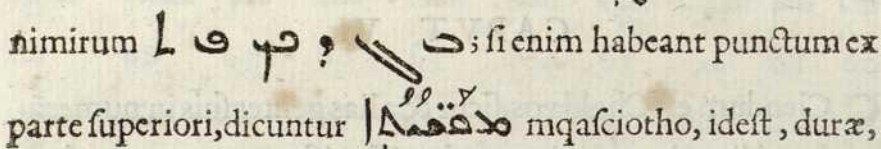 nimirum ܒ ܓ ܕ ܟ ܦ ܬ; ſi enim habeant punctum ex
parte ſuperiori, dicuntur ܡܩܫ̈ܝܬܐ mqaſciotho, ideſt, duræ,